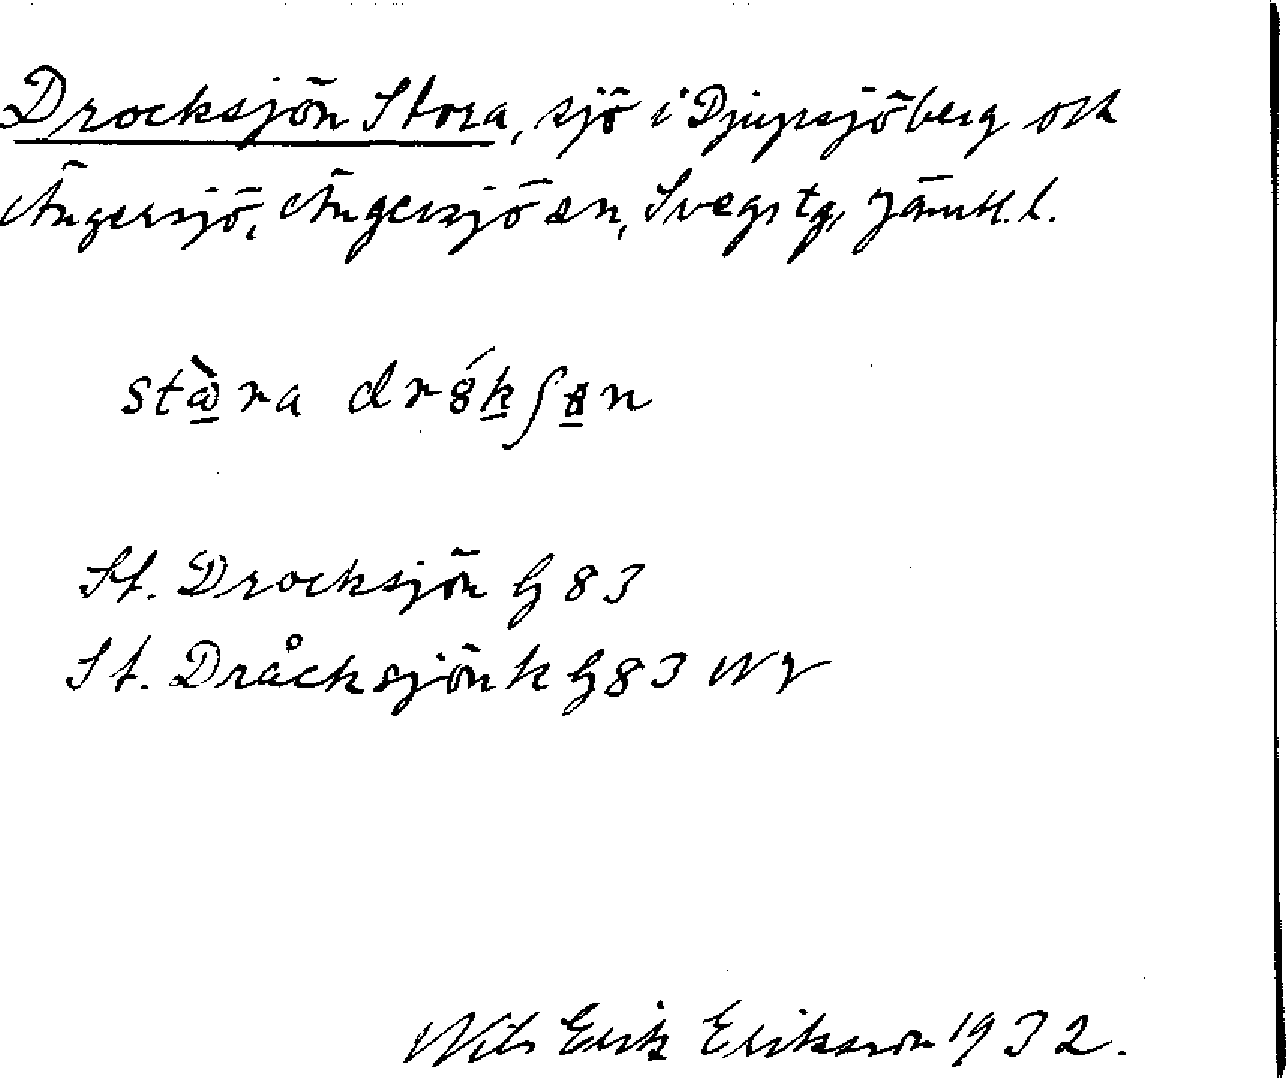 Drocksjön Stora, sjö i Djupsjöberg och
Ängersjö, Ängersjö sn, Svegs tg, Jämtl. l.
stɷ̀ra drȣ́kʃȣn
St. Drocksjön G 83
St. Dråcksjön k G 83 NV
Nils Erik Eriksson 1932.